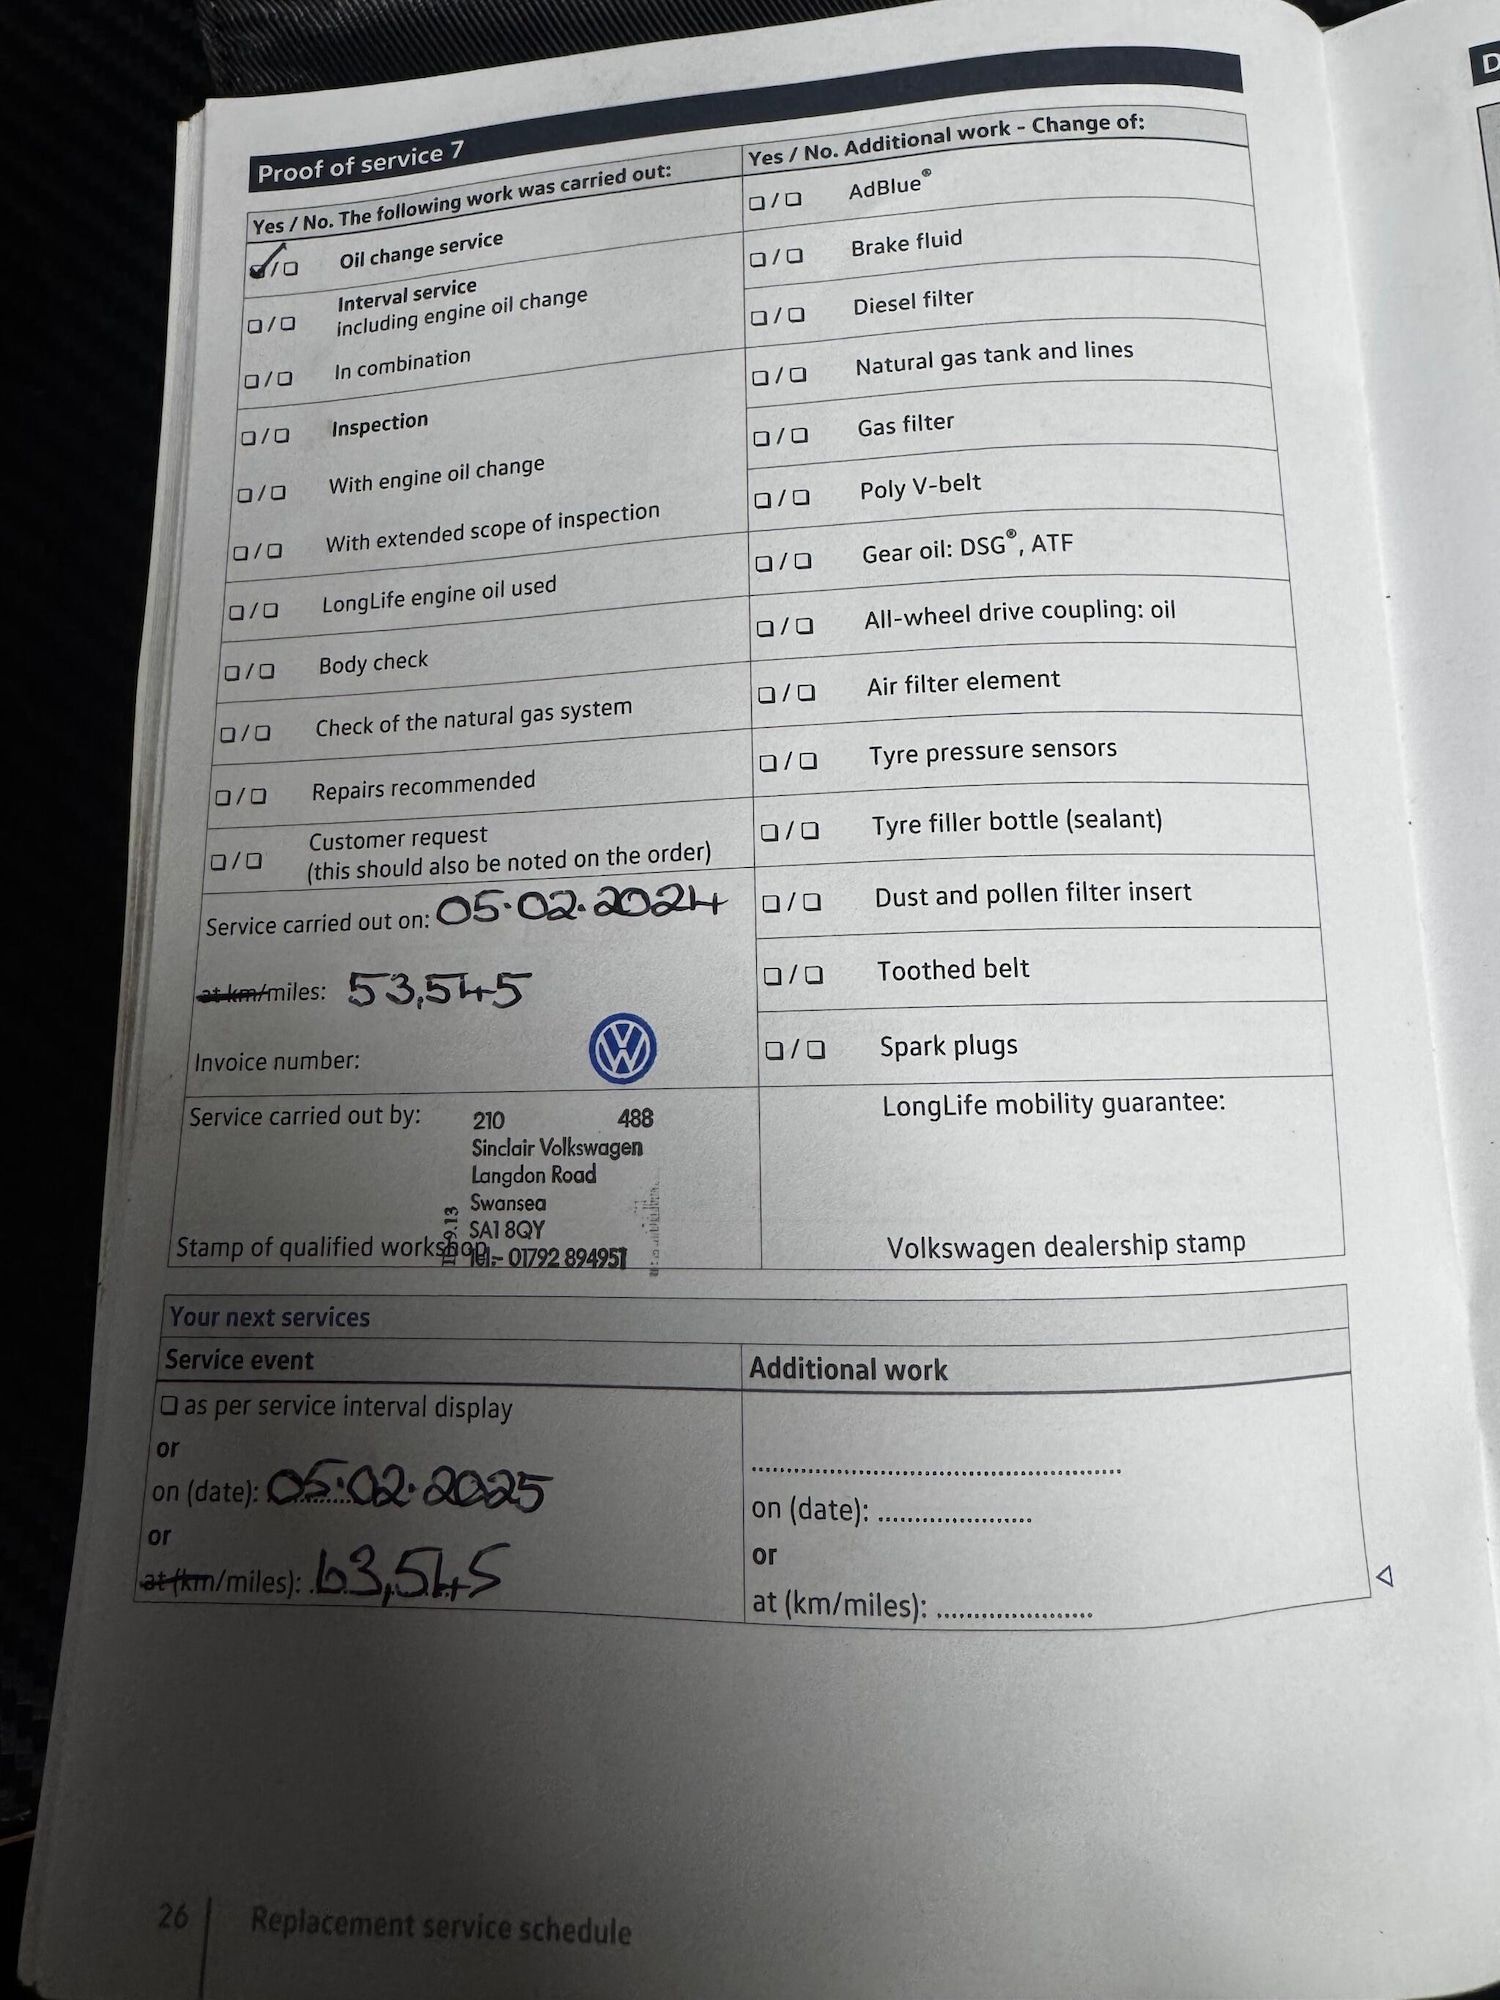 Proof of service 7
Yes / No. The following work was carried out:
☑/☐ Oil change service
☐/☐ Interval service
including engine oil change
☐/☐ In combination
☐/☐ Inspection
☐/☐ With engine oil change
☐/☐ With extended scope of inspection
☐/☐ LongLife engine oil used
☐/☐ Body check
☐/☐ Check of the natural gas system
☐/☐ Repairs recommended
☐/☐ Customer request
(this should also be noted on the order)
Service carried out on: 05.02.2024
at km/miles: 53,545
Invoice number:
Service carried out by:
210 488
Sinclair Volkswagen
Langdon Road
Swansea
SA1 8QY
Tel:- 01792 894951
Stamp of qualified workshop
Yes / No. Additional work - Change of:
☐/☐ AdBlue®
☐/☐ Brake fluid
☐/☐ Diesel filter
☐/☐ Natural gas tank and lines
☐/☐ Gas filter
☐/☐ Poly V-belt
☐/☐ Gear oil: DSG®, ATF
☐/☐ All-wheel drive coupling: oil
☐/☐ Air filter element
☐/☐ Tyre pressure sensors
☐/☐ Tyre filler bottle (sealant)
☐/☐ Dust and pollen filter insert
☐/☐ Toothed belt
☐/☐ Spark plugs
LongLife mobility guarantee:
Volkswagen dealership stamp
Your next services
Service event
☐ as per service interval display
or
on (date): 05.02.2025
or
at (km/miles): 63,545
Additional work
on (date):
or
at (km/miles):
26 Replacement service schedule
D